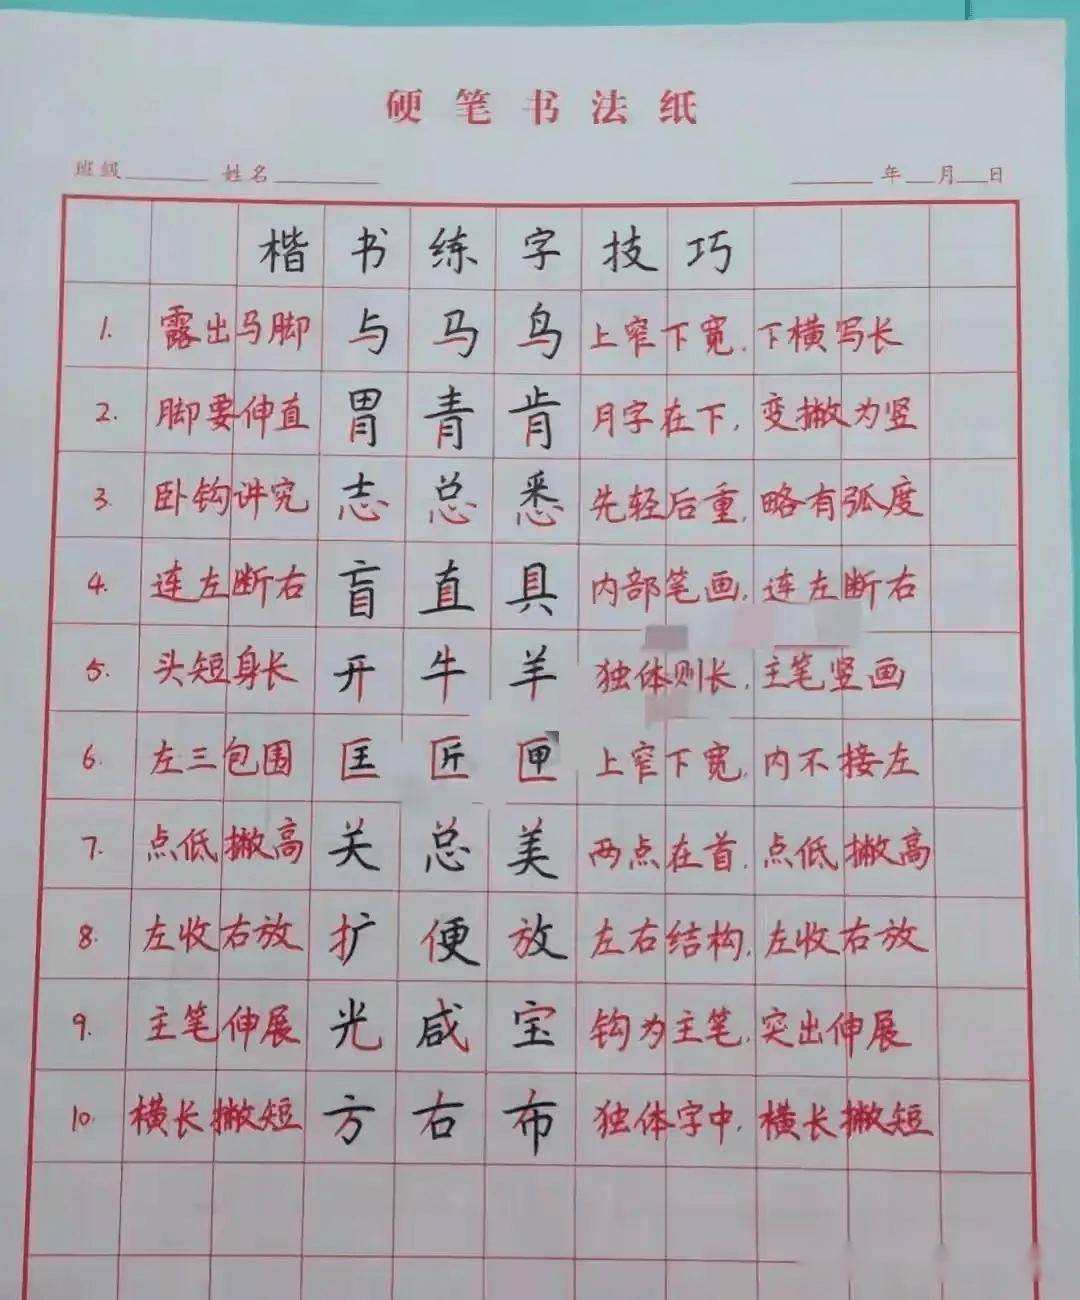 硬笔书法纸
班级 姓名 年 月 日
楷书练字技巧
1. 露出马脚 与 马 鸟 上窄下宽,下横写长
2. 脚要伸直 胃 青 肯 月字在下,变撇为竖
3. 卧钩讲究 志 总 悉 先轻后重,略有弧度
4. 连左断右 盲 直 具 内部笔画,连左断右
5. 头短身长 开 牛 羊 独体则长,主笔竖画
6. 左三包围 匡 匠 匣 上窄下宽,内不接左
7. 点低撇高 关 总 美 两点在首,点低撇高
8. 左收右放 扩 便 放 左右结构,左收右放
9. 主笔伸展 光 咸 宝 钩为主笔,突出伸展
10. 横长撇短 方 右 布 独体字中,横长撇短